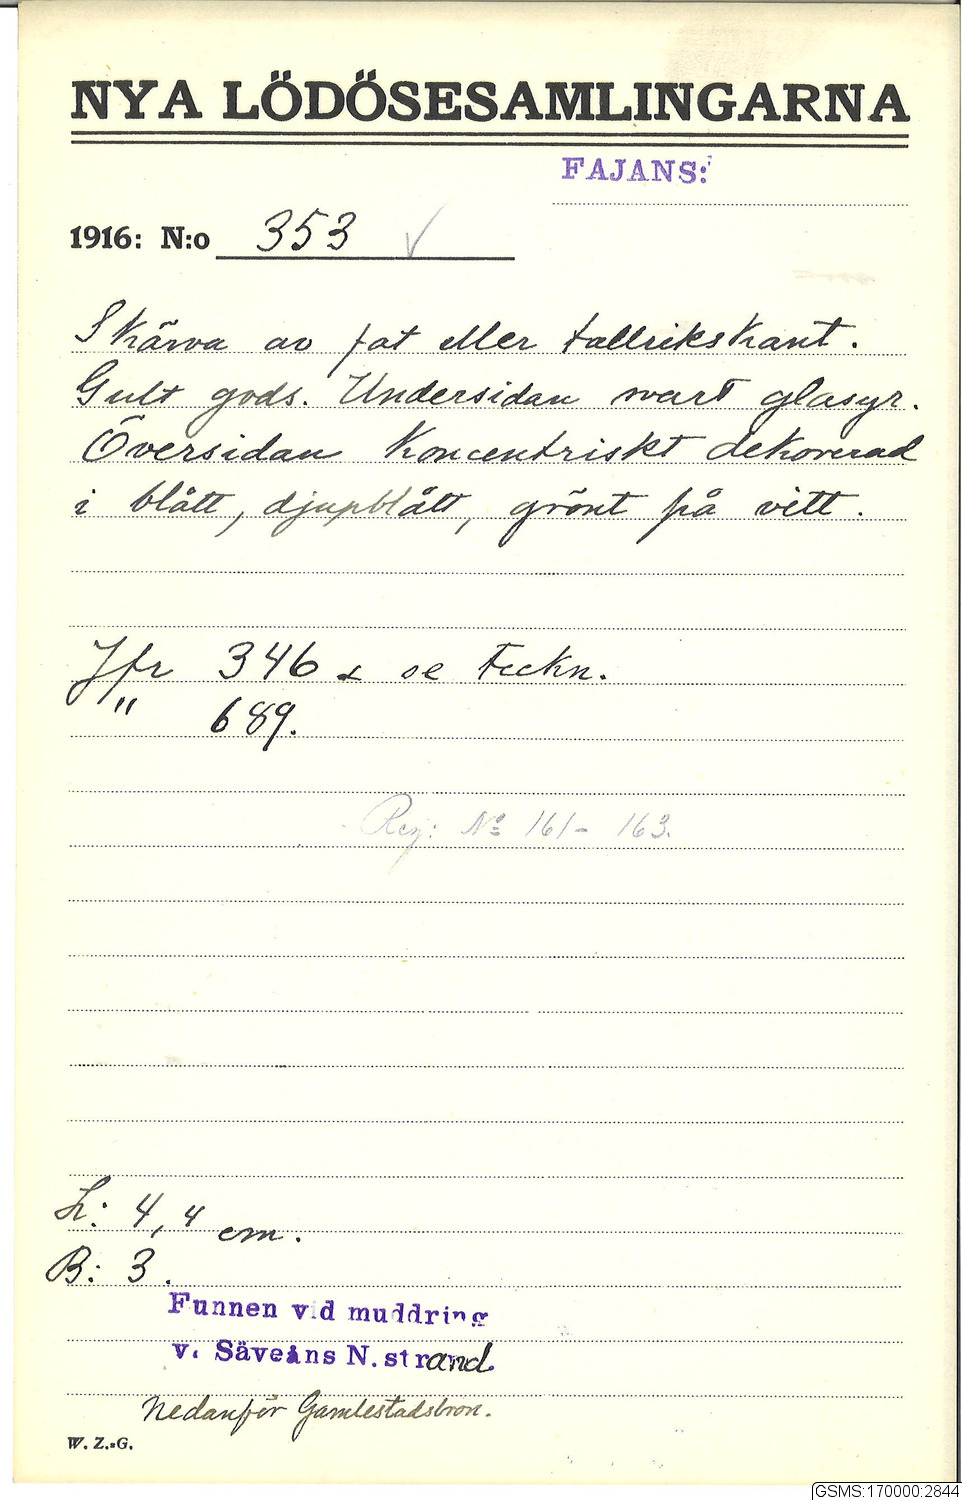 NYA LÖDÖSESAMLINGARNA
FAJANS:
1916: N:o 353 ✓
Skärva av fat eller tallrikskant.
Gult gods. Undersidan svart glasyr.
Översidan koncentriskt dekorerad
i blått, djupblått, grönt på vitt.
Jfr 346 & se Teckn.
" 689.
Reg: No 161-163.
L: 4,4 cm.
B: 3.
Funnen vid muddring
v. Säveåns N. strand
Nedanför Gamlestadsbron.
W. Z.-G.
GSMS:170000:2844